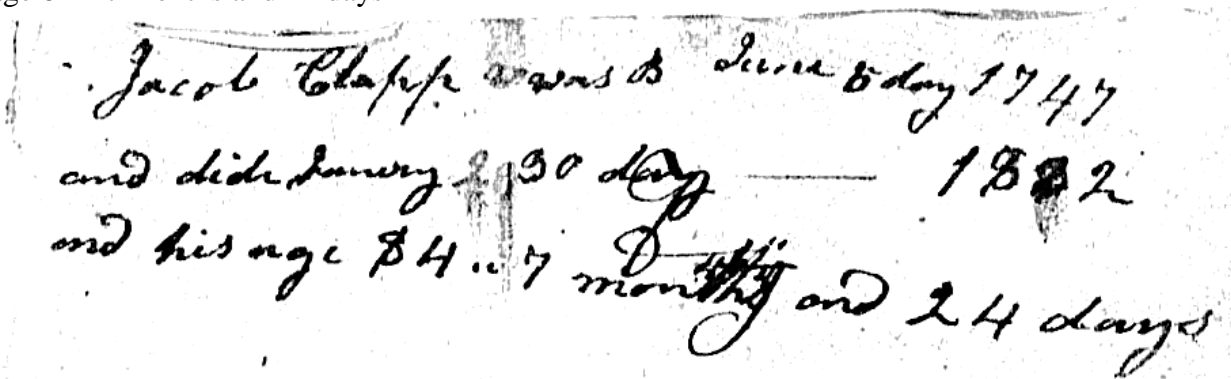 Jacob Clapp was B June 5 day 1747
and dide Janury 30 day —— 1832
and his age 84 .. 7 months and 24 days